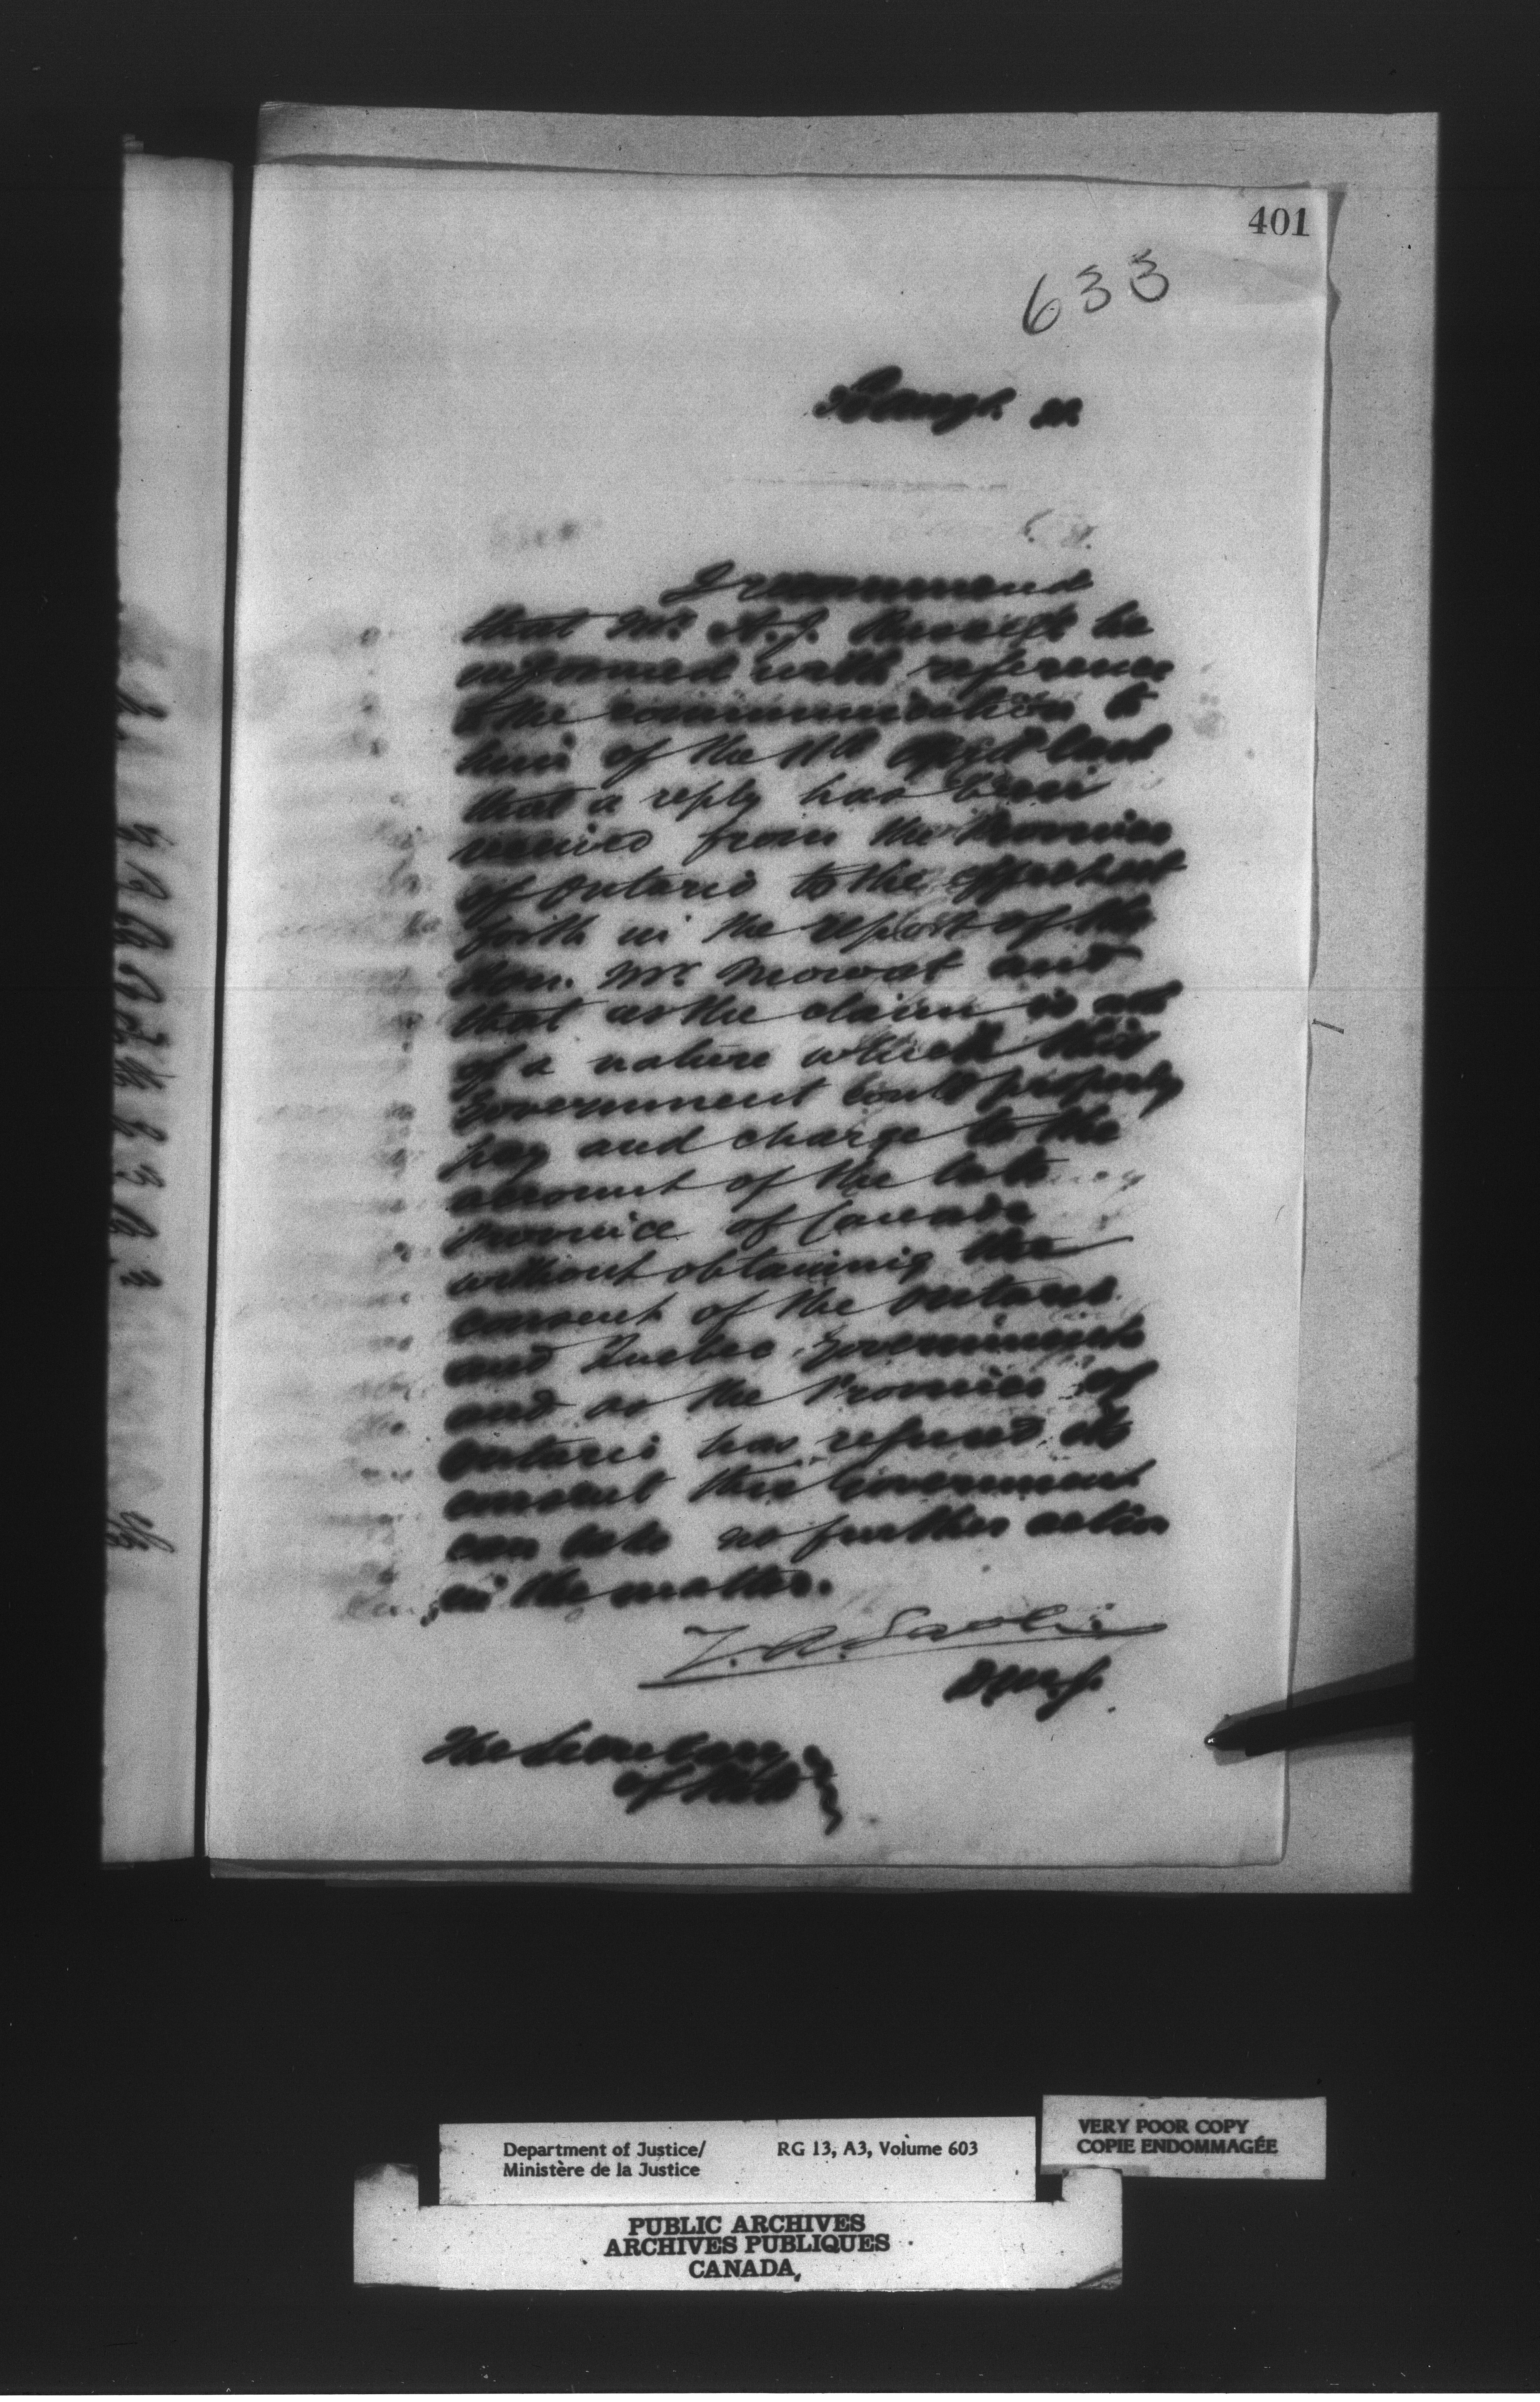 401
633
I recommend
that Mr. A. J. Russell be
informed with reference
to the communication to
him of the 11th Sept last
that a reply has been
received from the Province
of Ontario to the effect set
forth in the report of the
Hon. Mr. Mowat and
that as the claim is not
of a nature which this
Government could properly
pay and charge to the
account of the late
Province of Canada
without obtaining the
consent of the Ontario
and Quebec Governments
and as the Province of
Ontario has refused its
consent this Government
can take no further action
in the matter.
D.M.J.
The Secretary
of State
Department of Justice/ RG 13, A3, Volume 603
Ministère de la Justice
VERY POOR COPY
COPIE ENDOMMAGÉE
PUBLIC ARCHIVES
ARCHIVES PUBLIQUES
CANADA